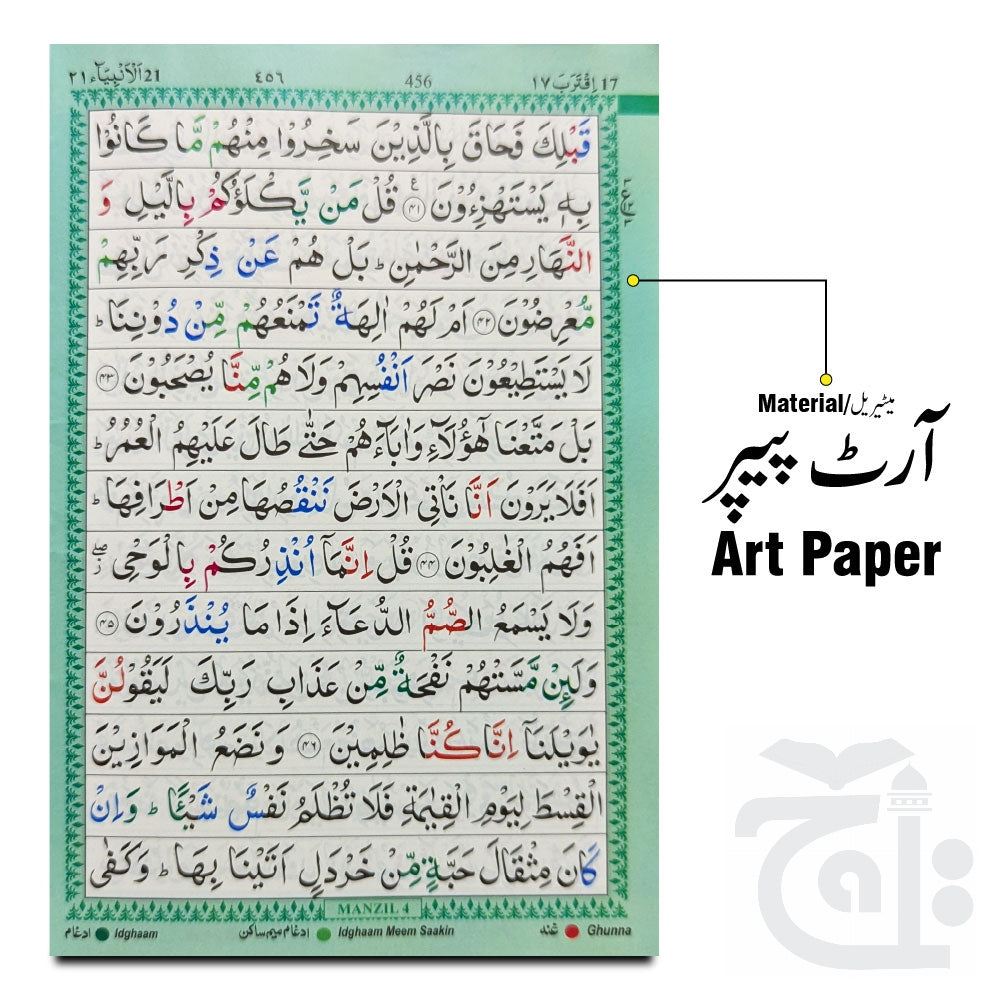 17 اِقْتَرَبَ ١٧ 456 ٤٥٦ 21 اَلْاَنْبِيَآء ٢١
قَبْلِكَ فَحَاقَ بِالَّذِيْنَ سَخِرُوْا مِنْهُمْ مَّا كَانُوْا
بِهٖ يَسْتَهْزِءُوْنَ ﴿٤١﴾ قُلْ مَنْ يَّكْلَؤُكُمْ بِالَّيْلِ وَ
النَّهَارِ مِنَ الرَّحْمٰنِ ؕ بَلْ هُمْ عَنْ ذِكْرِ رَبِّهِمْ
مُّعْرِضُوْنَ ﴿٤٢﴾ اَمْ لَهُمْ اٰلِهَةٌ تَمْنَعُهُمْ مِّنْ دُوْنِنَا ؕ
لَا يَسْتَطِيْعُوْنَ نَصْرَ اَنْفُسِهِمْ وَلَا هُمْ مِّنَّا يُصْحَبُوْنَ ﴿٤٣﴾
بَلْ مَتَّعْنَا هٰٓؤُلَآءِ وَاٰبَآءَهُمْ حَتّٰى طَالَ عَلَيْهِمُ الْعُمُرُ ؕ
اَفَلَا يَرَوْنَ اَنَّا نَاْتِى الْاَرْضَ نَنْقُصُهَا مِنْ اَطْرَافِهَا ؕ
اَفَهُمُ الْغٰلِبُوْنَ ﴿٤٤﴾ قُلْ اِنَّمَآ اُنْذِرُكُمْ بِالْوَحْىِ ۖ
وَلَا يَسْمَعُ الصُّمُّ الدُّعَآءَ اِذَا مَا يُنْذَرُوْنَ ﴿٤٥﴾
وَلَئِنْ مَّسَّتْهُمْ نَفْحَةٌ مِّنْ عَذَابِ رَبِّكَ لَيَقُوْلُنَّ
يٰوَيْلَنَآ اِنَّا كُنَّا ظٰلِمِيْنَ ﴿٤٦﴾ وَنَضَعُ الْمَوَازِيْنَ
الْقِسْطَ لِيَوْمِ الْقِيٰمَةِ فَلَا تُظْلَمُ نَفْسٌ شَيْئًا ؕ وَاِنْ
كَانَ مِثْقَالَ حَبَّةٍ مِّنْ خَرْدَلٍ اَتَيْنَا بِهَا ؕ وَكَفٰى
MANZIL 4
ادغام Idghaam ادغام میم ساکن Idghaam Meem Saakin غنه Ghunna
Material/میٹیریل
آرٹ پیپر
Art Paper